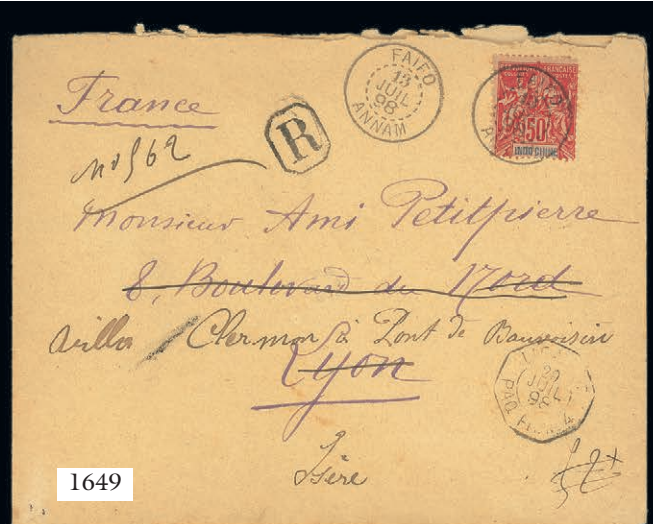 France
FAIFO
13
JUIL
98
ANNAM
50
INDO-CHINE
R
No 562
Monsieur Ami Petitpierre
8, Boulevard du Nord
villa Clermon à Pont de Beauvoisin
Lyon
20
JUIL
98
PAQ. FR. No 4
Isère
1649